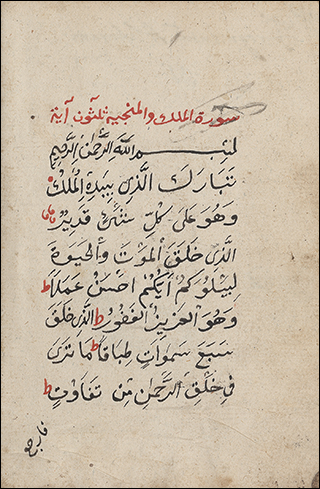 سورة الملك والمنجية ثلثون آية
بسم الله الرحمن الرحيم
تَبَارَكَ الَّذِي بِيَدِهِ الْمُلْكُ
وَهُوَ عَلَى كُلِّ شَيْءٍ قَدِيرٌ
الَّذِي خَلَقَ الْمَوْتَ وَالْحَيَوةَ
لِيَبْلُوَكُمْ أَيُّكُمْ اَحْسَنُ عَمَلاً ط
وَهُوَ الْعَزِيزُ الْغَفُورُ ط الَّذِي خَلَقَ
سَبْعَ سَمَوَاتٍ طِبَاقًا ط مَا تَرَى
فِي خَلْقِ الرَّحْمَنِ مِنْ تَفَاوُتٍ ط
فارجع